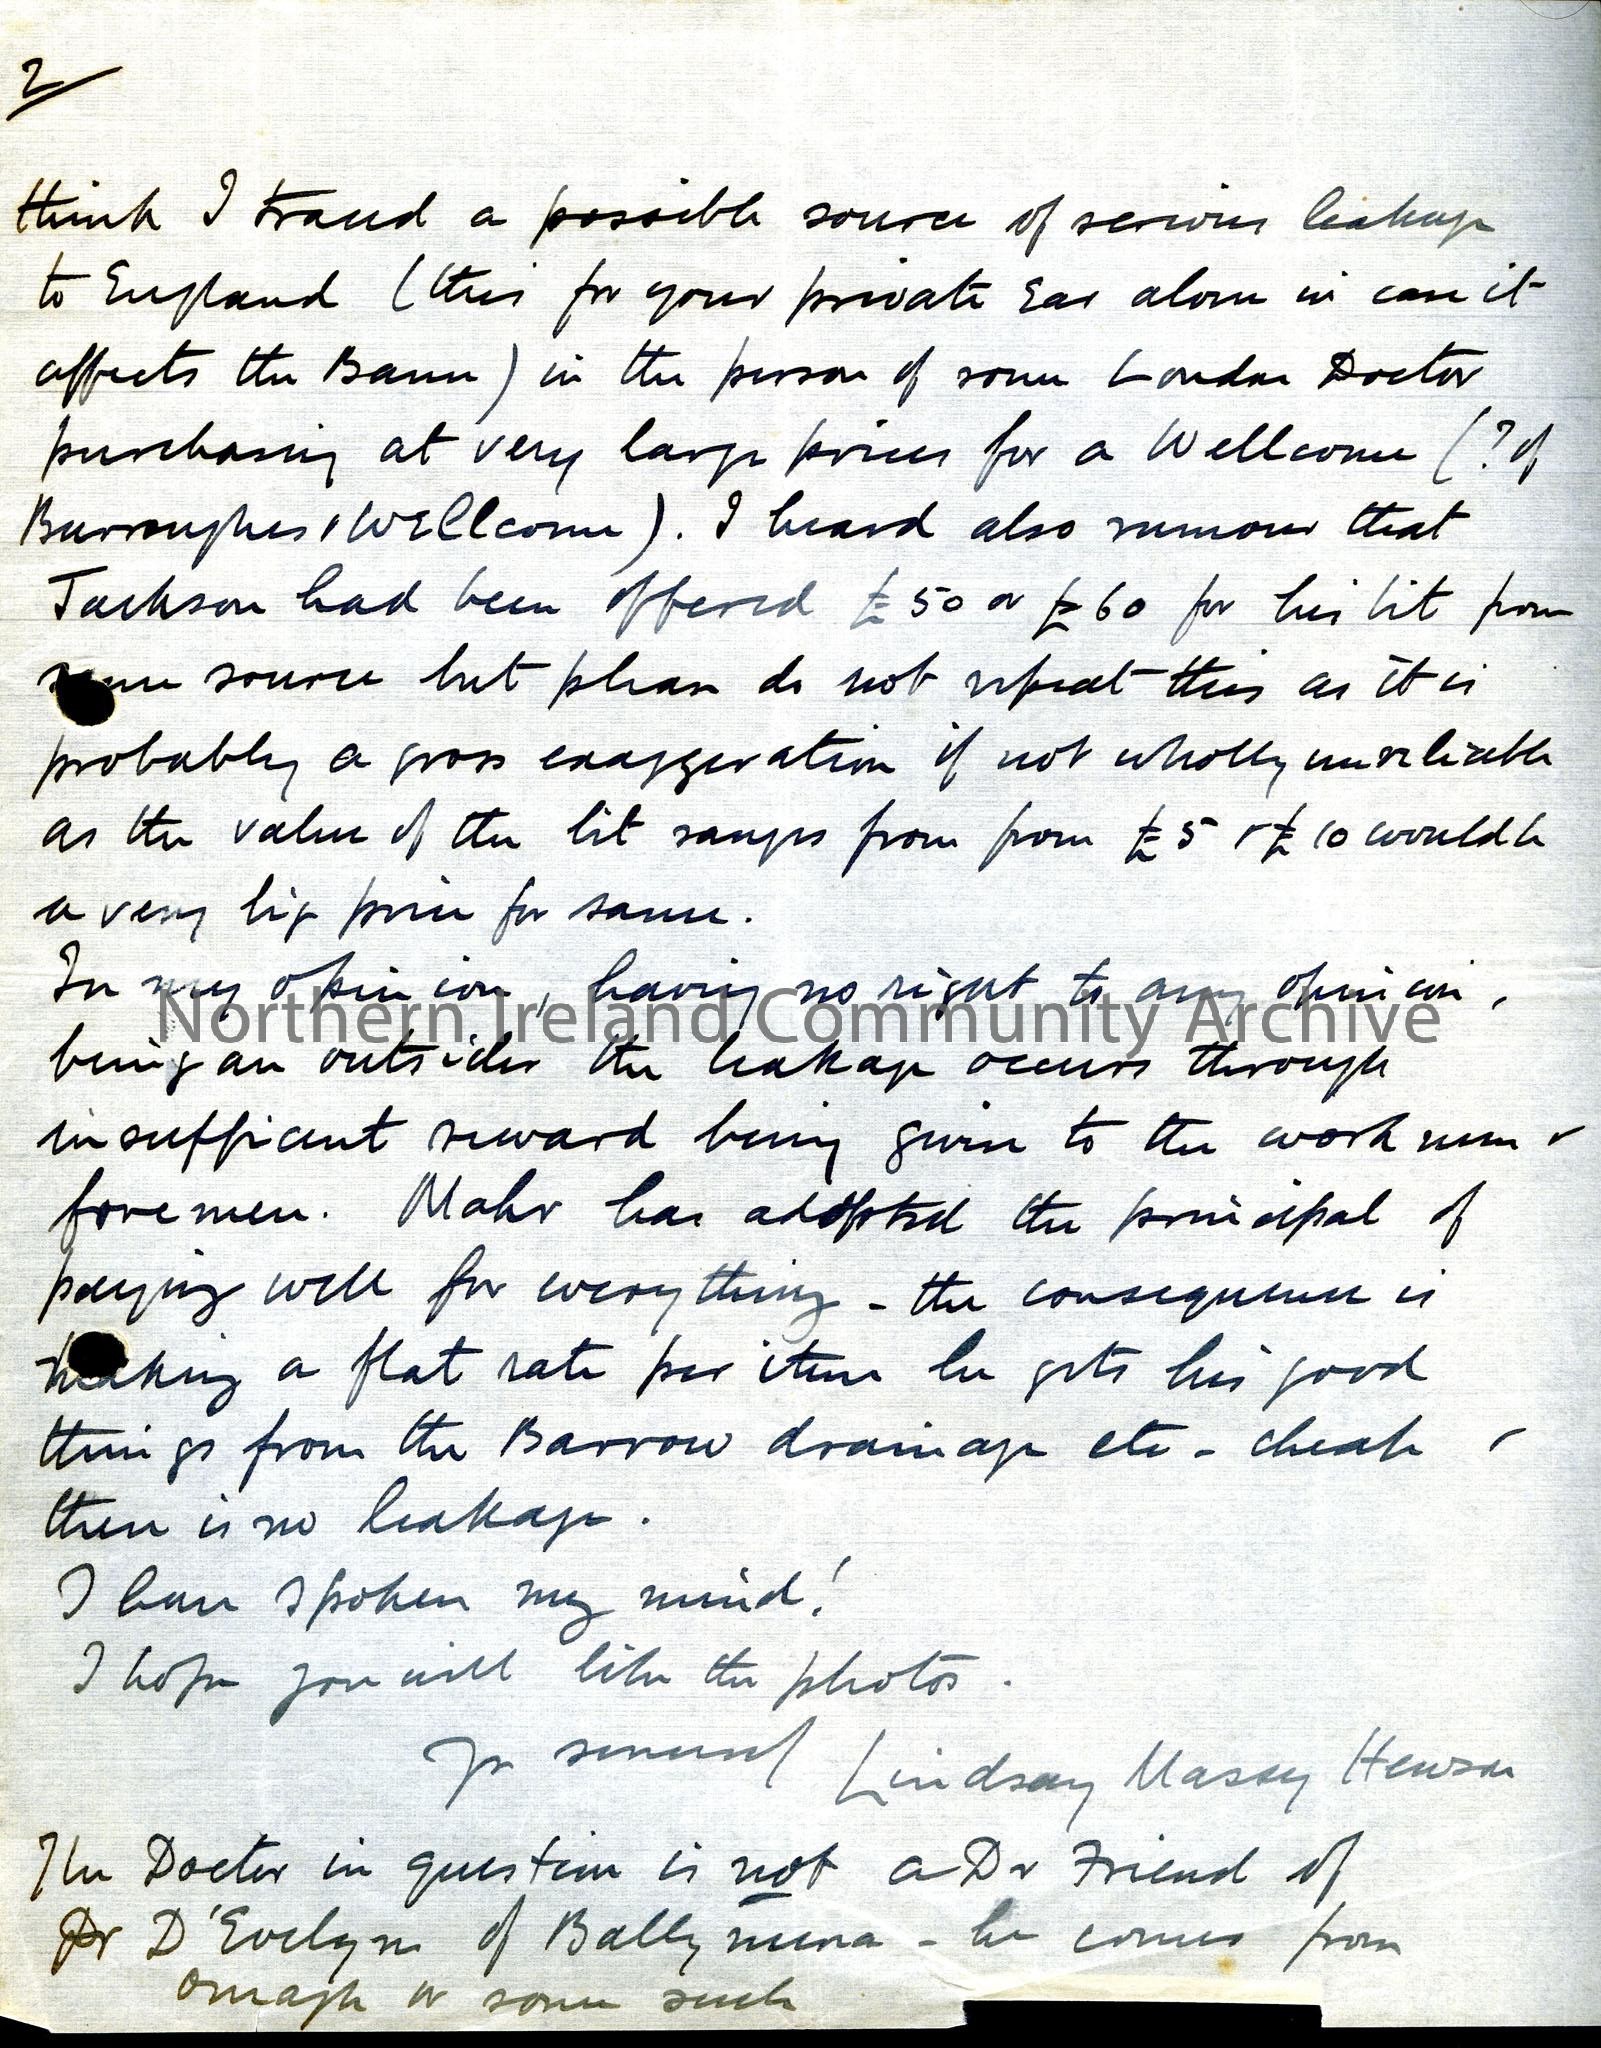 2
think I traced a possible source of serious leakage
to England (this for your private Ear alone in case it
affects the Bann) in the person of some London Doctor
purchasing at very large prices for a Wellcome (? of
Burroughes & Wellcome). I heard also rumour that
Jackson had been offered £50 or £60 for his bit from
same source but please do not repeat this as it is
probably a gross exaggeration if not wholly unreliable
as the value of the bit ranges from from £5 & £10 would be
a very big price for same.
In my opinion, having no right to any opinion,
being an outsider the leakage occurs through
insufficient reward being given to the workmen &
foremen. Mahr has adopted the principal of
paying well for everything - the consequence is
taking a flat rate per item he gets his good
things from the Barrow drainage etc - cheap &
there is no leakage.
I have spoken my mind!
I hope you will like the photos.
Yr sincerely Lindsay Massy Hewson
The Doctor in question is not a Dr Friend of
Dr D'Evelyn of Ballymena - he comes from
Omagh or some such
Northern Ireland Community Archive